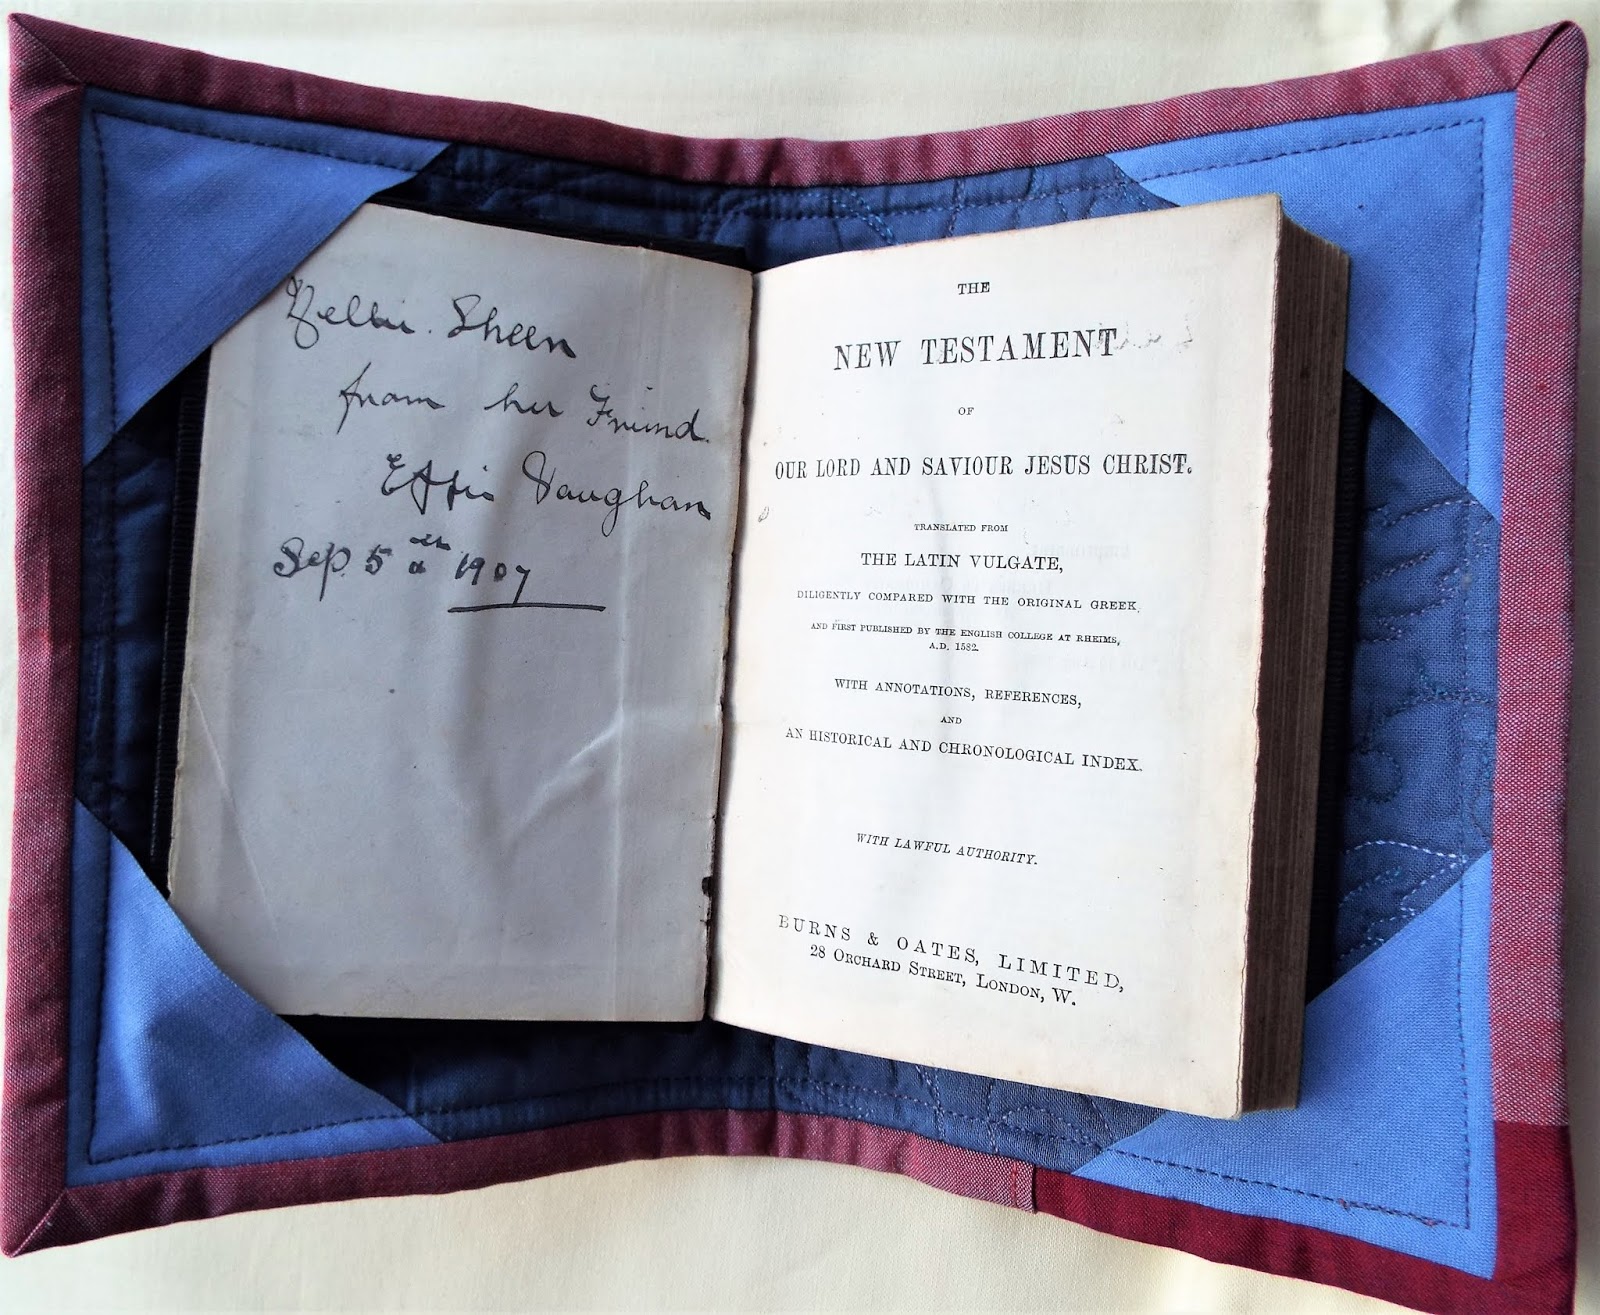 Nellie. Sheen
from her Friend.
Effie Vaughan
Sep. 5th 1907
THE
NEW TESTAMENT
OF
OUR LORD AND SAVIOUR JESUS CHRIST.
TRANSLATED FROM
THE LATIN VULGATE,
DILIGENTLY COMPARED WITH THE ORIGINAL GREEK,
AND FIRST PUBLISHED BY THE ENGLISH COLLEGE AT RHEIMS,
A.D. 1582.
WITH ANNOTATIONS, REFERENCES,
AND
AN HISTORICAL AND CHRONOLOGICAL INDEX.
WITH LAWFUL AUTHORITY.
BURNS & OATES, LIMITED,
28 ORCHARD STREET, LONDON, W.